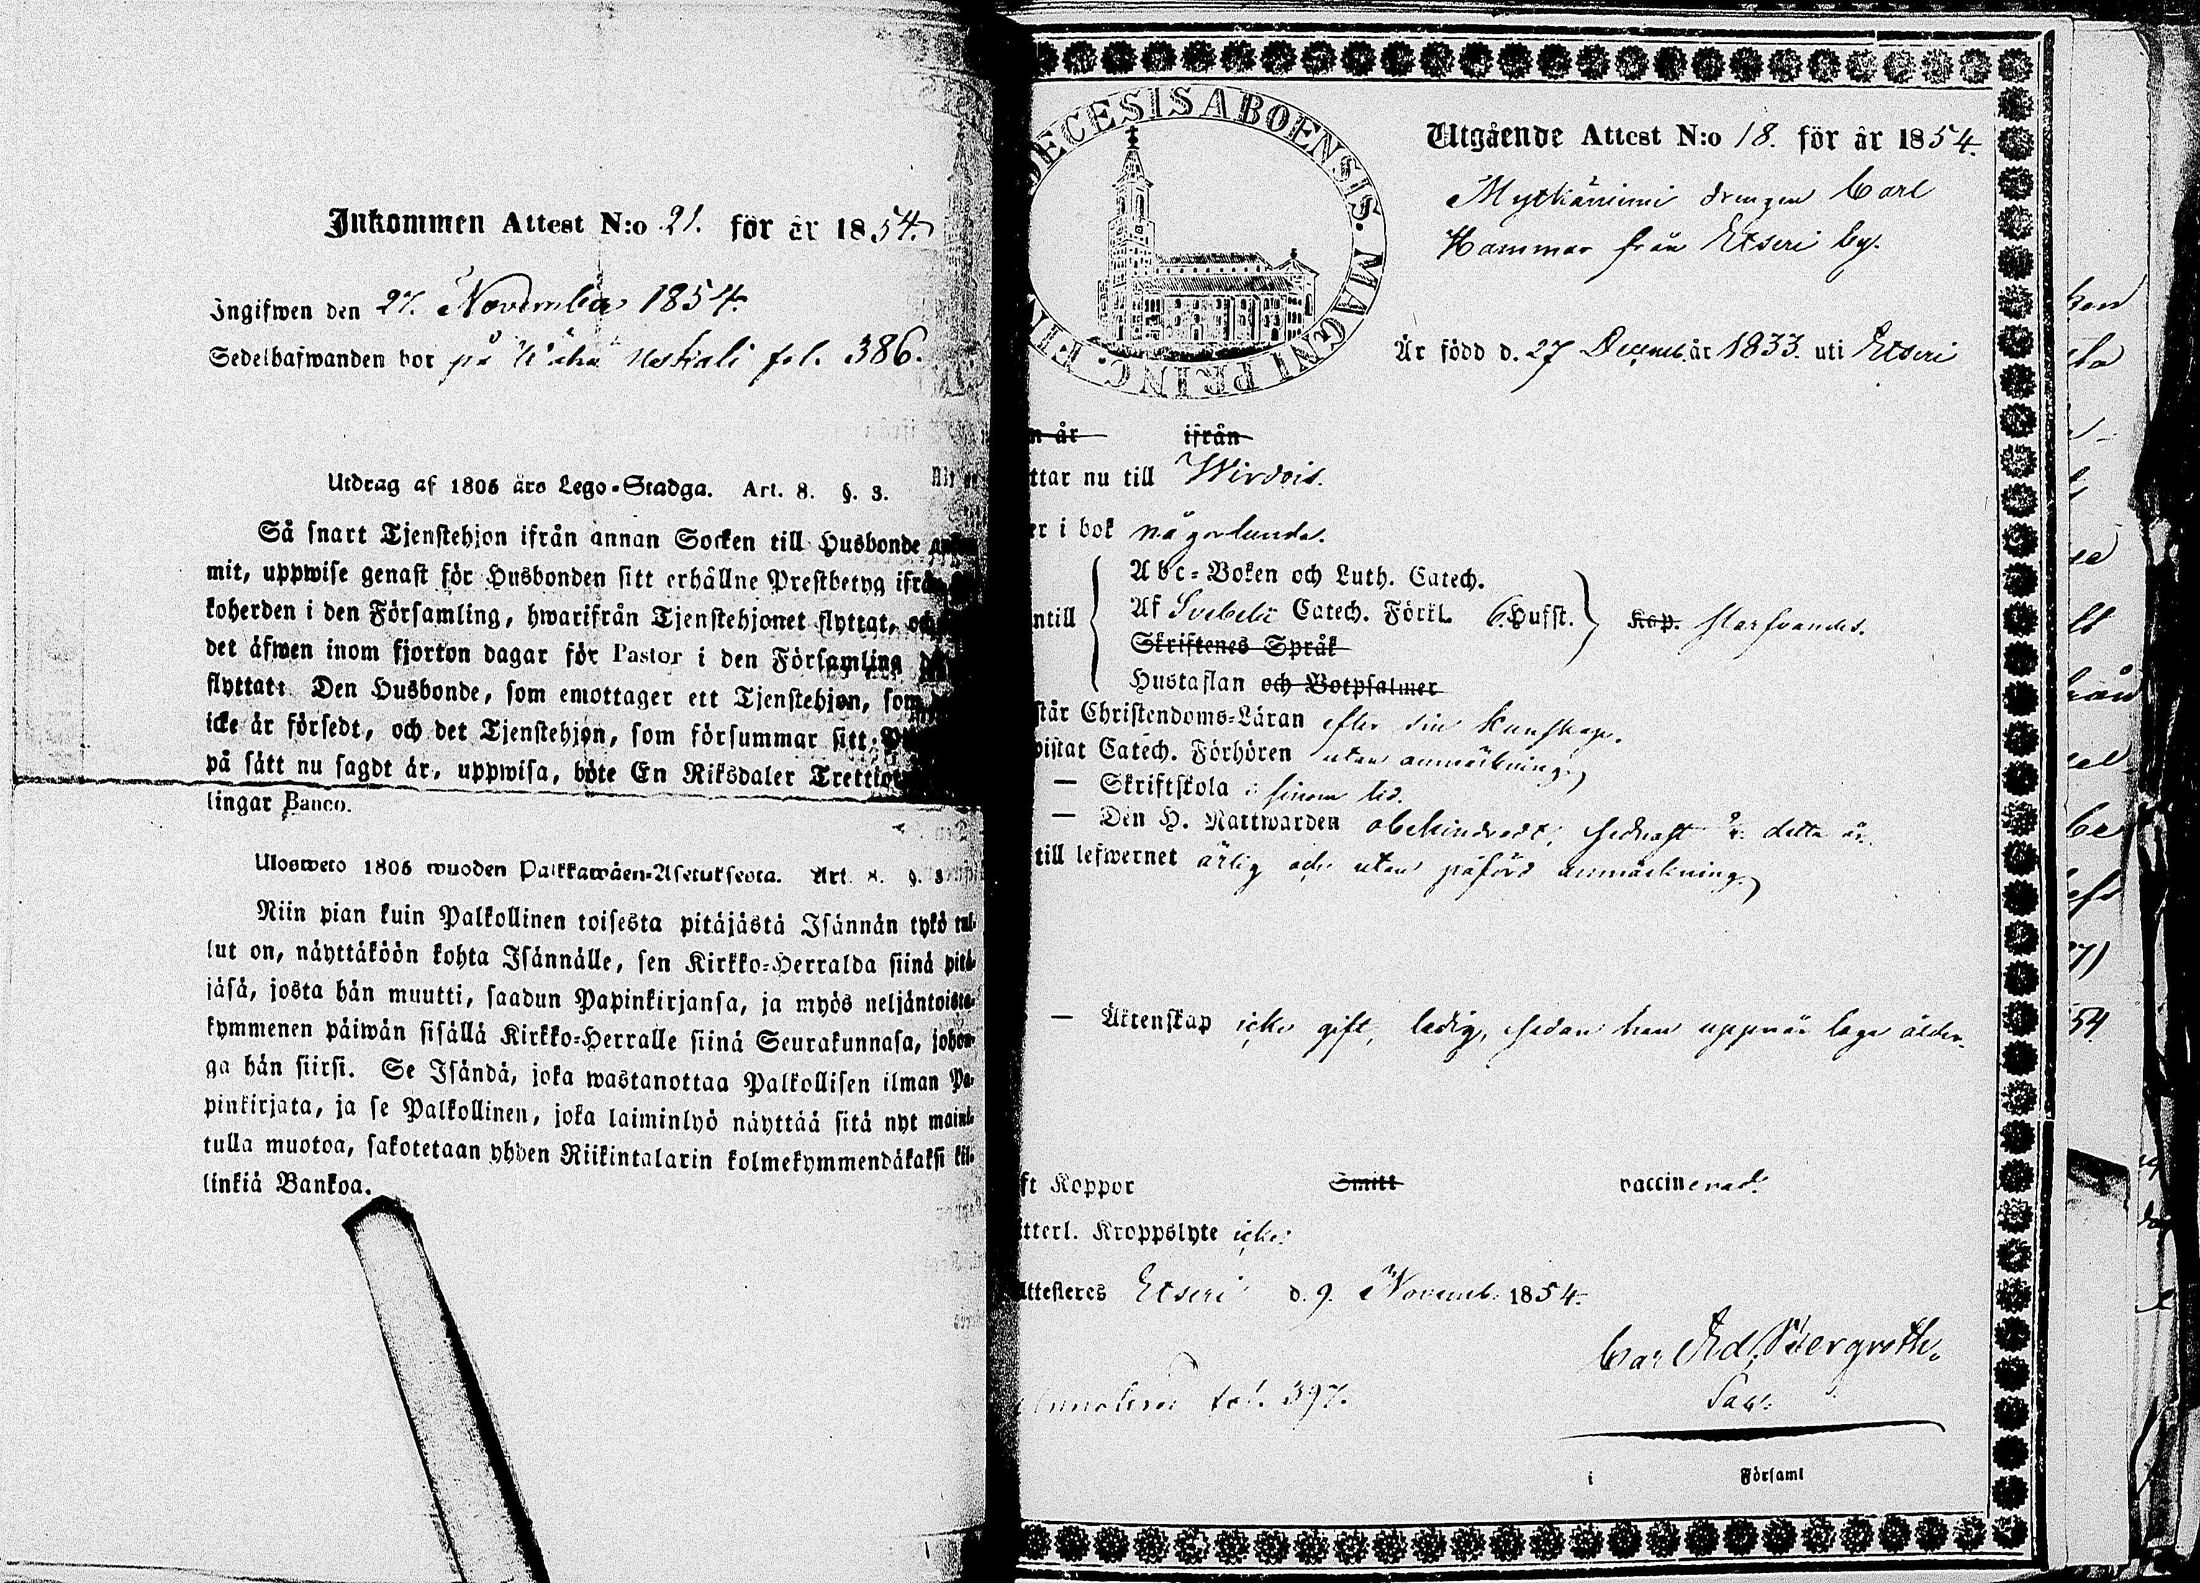 Inkommen Attest N:o 21. för år 1854.
Ingifwen den 27. November 1854.
Sedelhafwanden bor på Wäha Uskali fol. 386.
Utdrag af 1805 års Lego-Stadga. Art. 8. §. 3.
Så snart Tjenstehjon ifrån annan Socken till Husbonde
mit, uppwise genast för Husbonden sitt erhållne Prestbetyg ifrån
koherden i den Församling, hwarifrån Tjenstehjonet flyttat, och
det äfwen inom fjorton dagar för Pastor i den Församling
flyttat: Den Husbonde, som emottager ett Tjenstehjon, som
icke är försedt, och det Tjenstehjon, som försummar sitt
på sätt nu sagdt är, uppwisa, böte En Riksdaler Trettiotwå
lingar Banco.
Ulosweto 1805 wuoden Palkkawäen-Asetuksesta. Art. 8. §. 3
Niin pian kuin Palkollinen toisesta pitäjästä Isännän tykö tul-
lut on, näyttäköön kohta Isännälle, sen Kirkko-Herralda siinä pitä-
jäsä, josta hän muutti, saadun Papinkirjansa, ja myös neljäntoista-
kymmenen päiwän sisällä Kirkko-Herralle siinä Seurakunnasa, johon-
ga hän siirsi. Se Isändä, joka wastanottaa Palkollisen ilman Pa-
pinkirjata, ja se Palkollinen, joka laiminlyö näyttää sitä nyt maini-
tulla muotoa, sakotetaan yhden Riikintalarin kolmekymmendäkaksi kil-
linkiä Bankoa.
DECESIS ABOENSIS. MAGNI PRINC. FIN
Utgående Attest N:o 18. för år 1854.
Mythänimi drengen Carl
Hammar från Etseri by.
Är född d. 27 Decemb. år 1833. uti Etseri
n år ifrån
ttar nu till Wirdois.
er i bok någorlunda.
ntill
Abc-Boken och Luth. Catech.
Af Svebelii Catech. Förkl. 6. Hufst.
Skriftenes Språk
Hustaflan och Botpsalmer
Kap. starfvandes.
står Christendoms-Läran efter sin kunskap.
vistat Catech. Förhören utan anmärkning.
— Skriftskola i sinom tid.
— Den H. Nattwarden obehindradt, sednast i detta år.
till lefwernet ärlig och utan påförd anmärkning.
— Äktenskap icke gift, ledig, sedan han uppnår laga ålder.
ft Koppor Smitt vaccinerad.
tterl. Kroppslyte icke.
Attesteres Etseri d. 9. Novemb. 1854.
Carl Ad.
Sac.
fol. 397.
i Församl
54